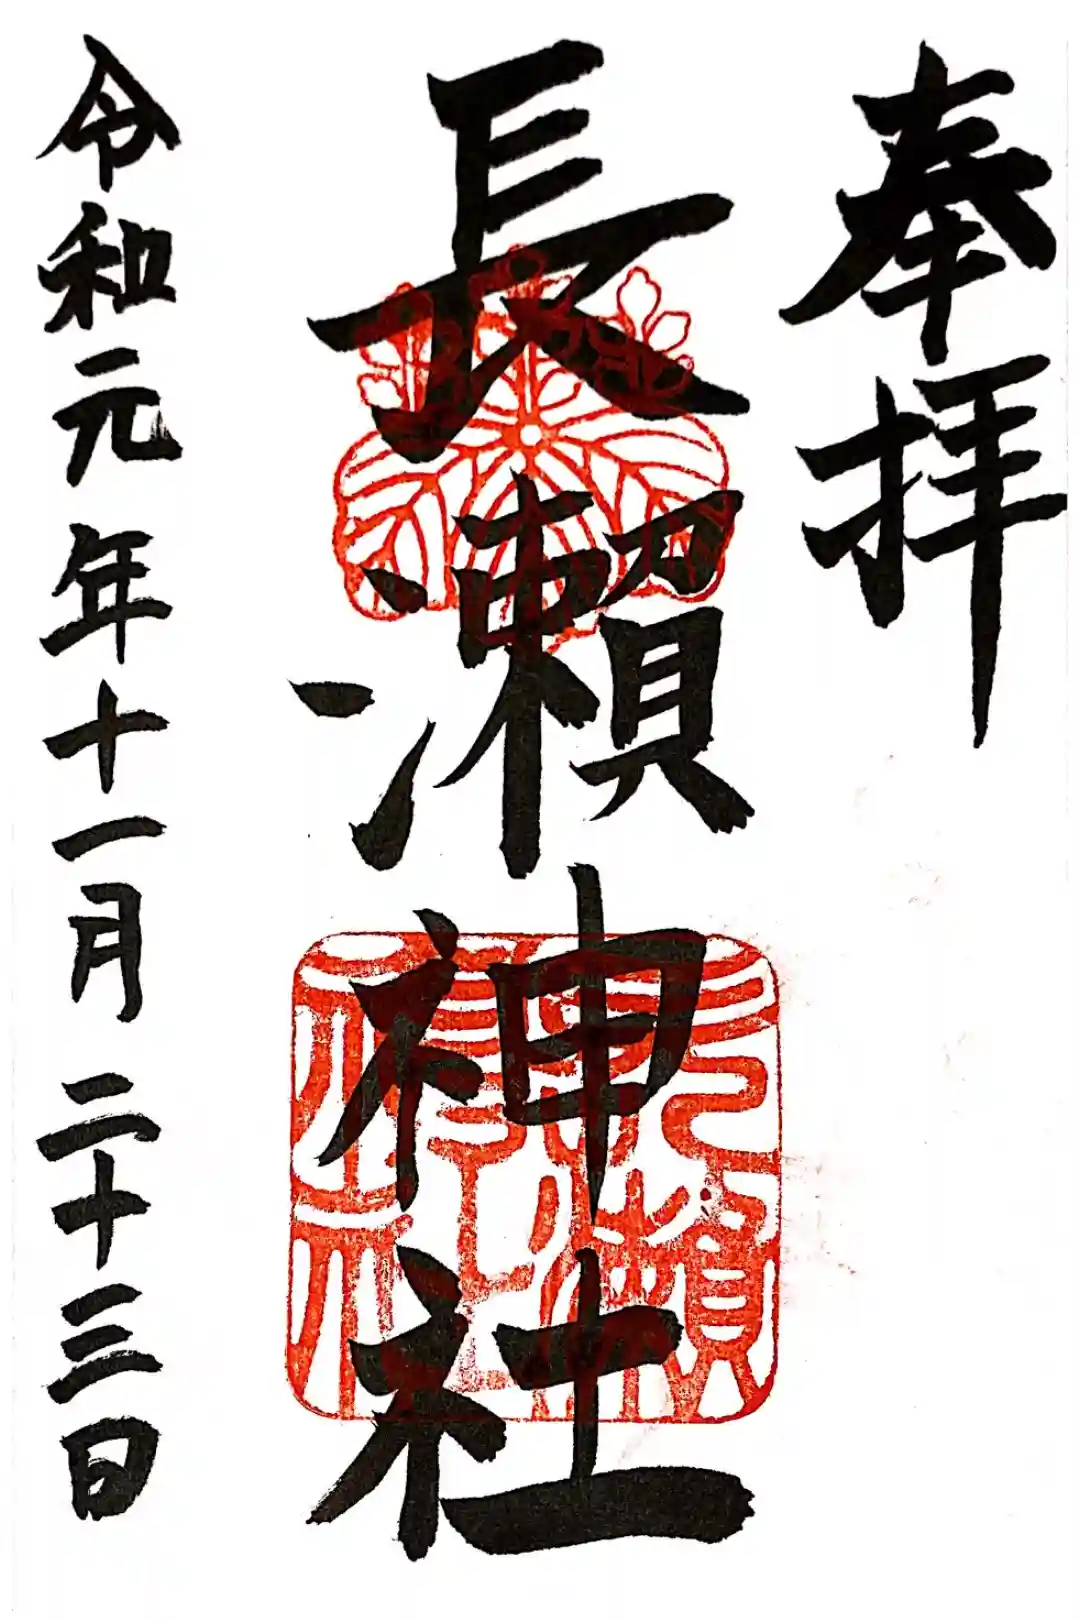 奉拝
長瀬神社
令和元年十一月二十三日